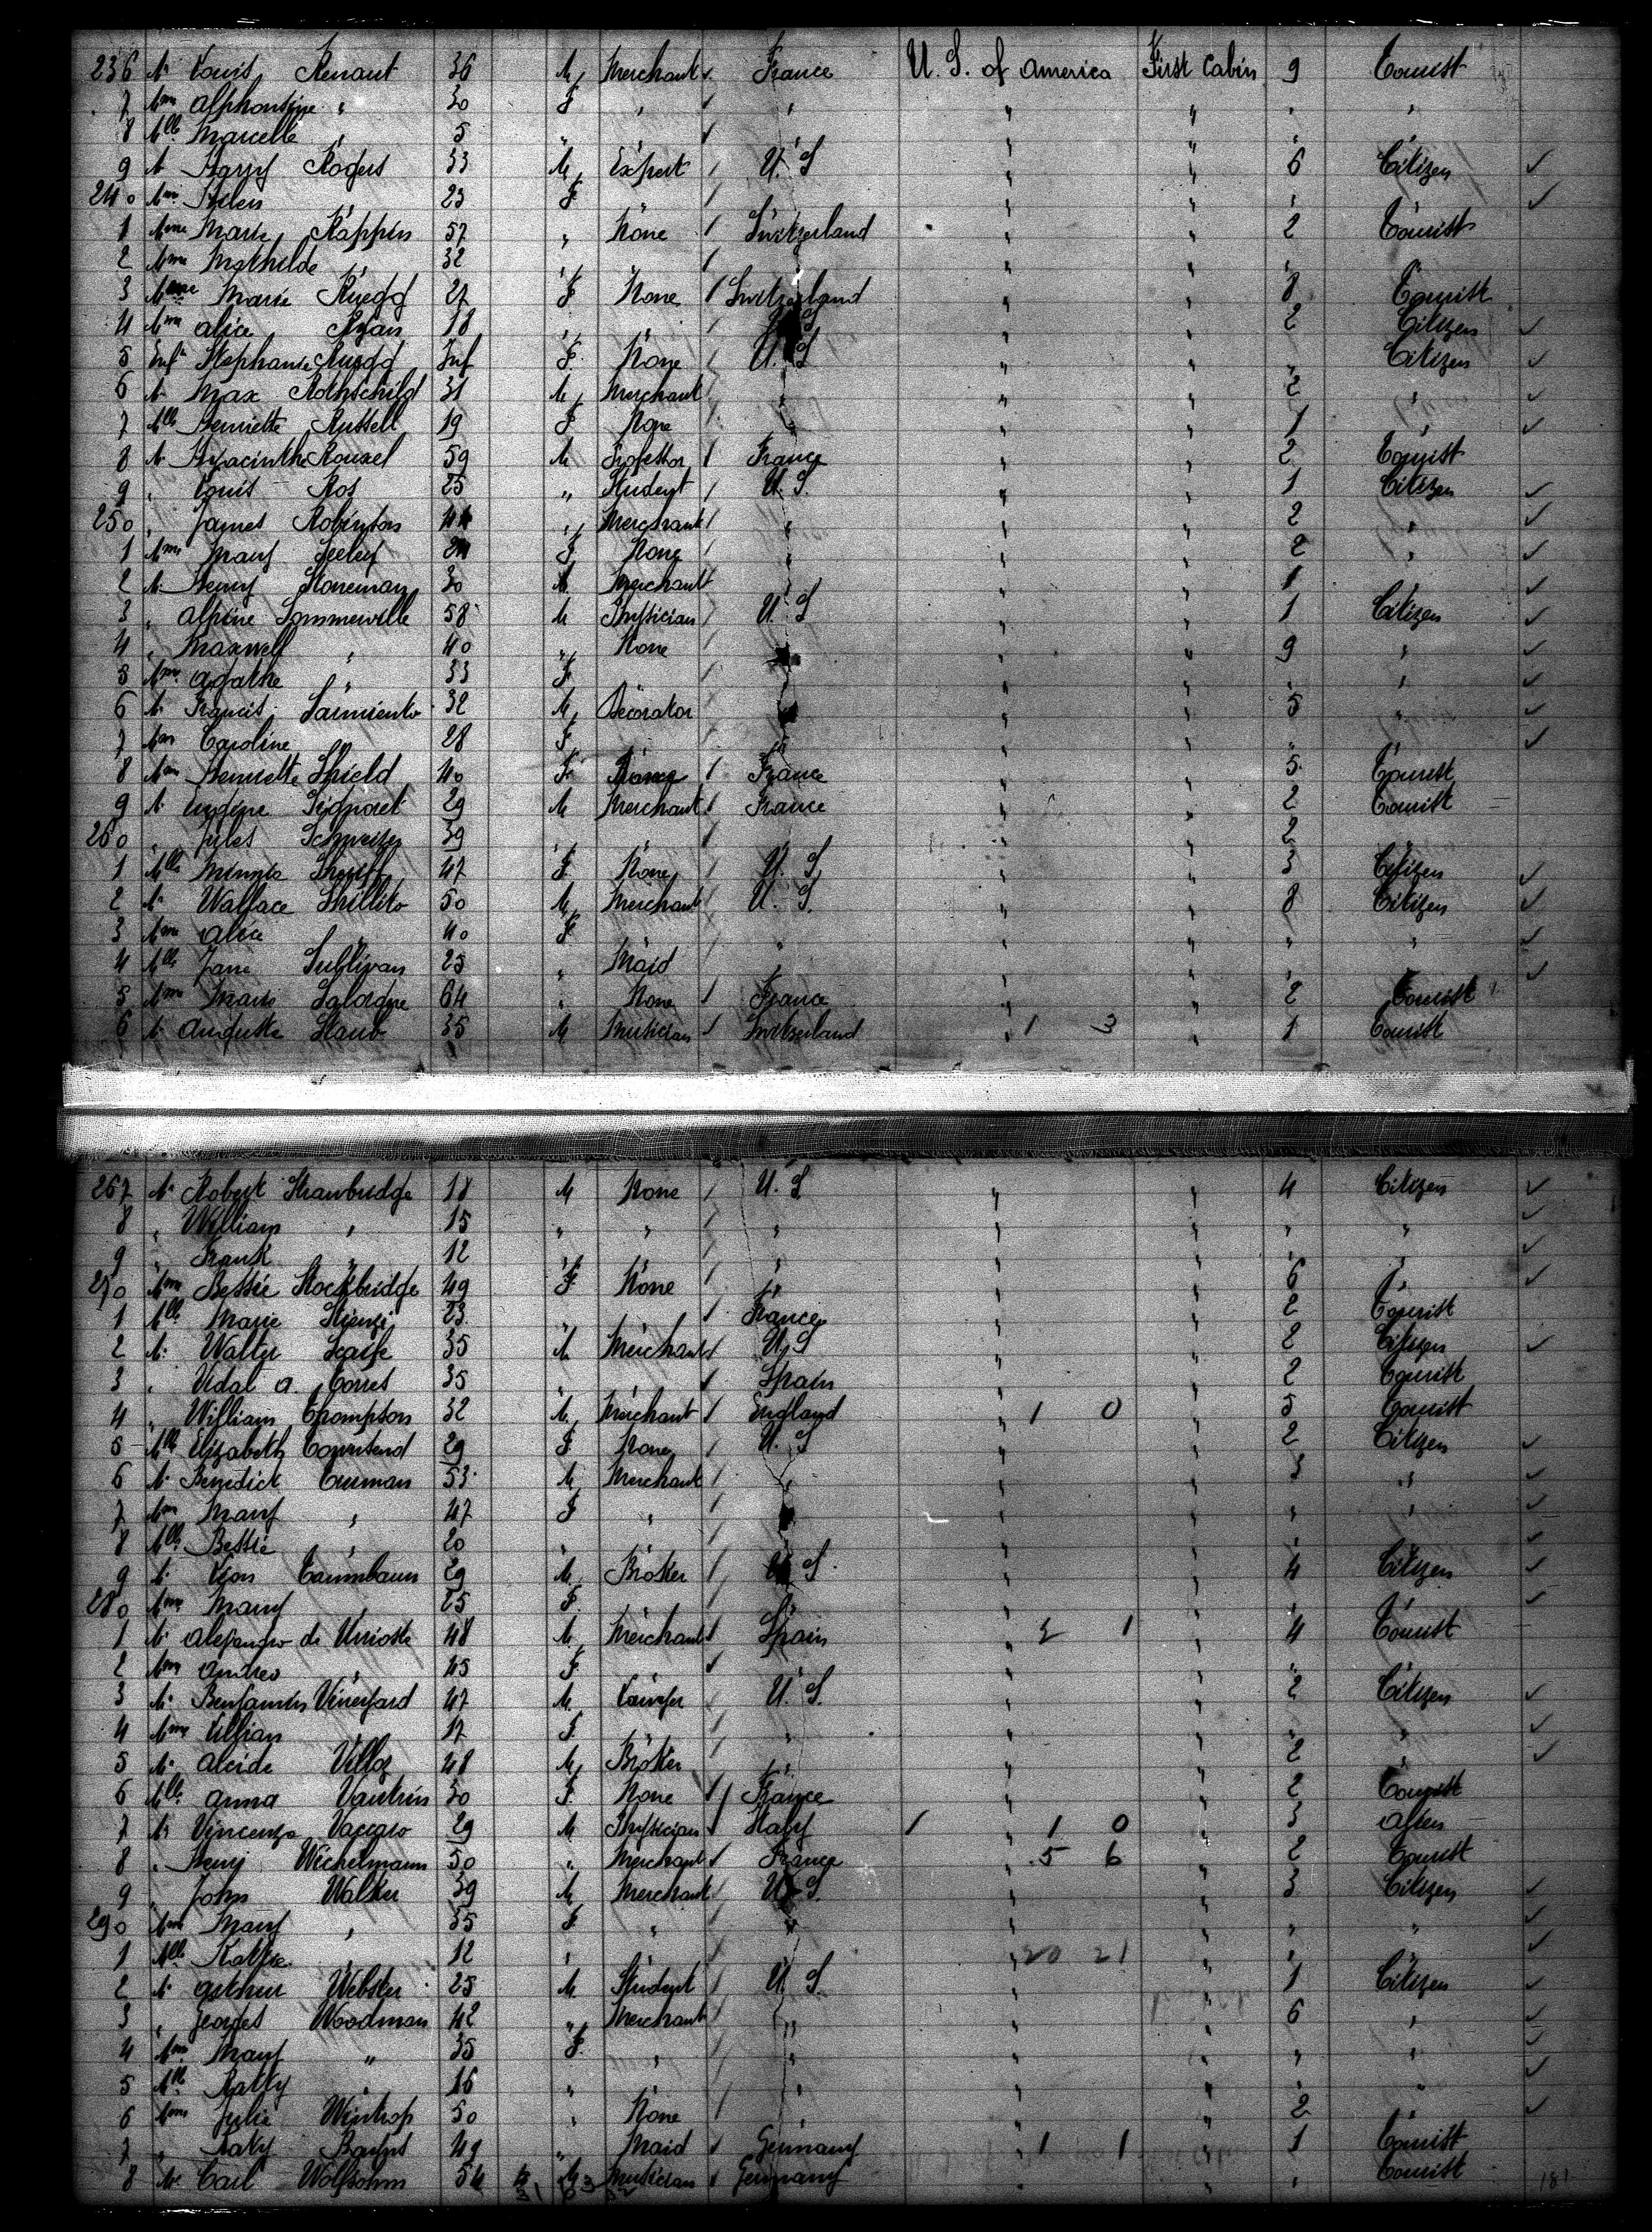 236 Mr Louis Renaut 36 M Merchant France U. S. of America First Cabin 9 Tourist
7 Mme Alphonsine " 30 F " " " " " "
8 Mlle Marcelle " 5 " " " "
9 M Harry Rogers 33 M Expert U. S " " 6 Citizen
240 Mme Helen 23 F " " "
1 Mme Marie Rappin 57 " None Switzerland " " 2 Tourist
2 Mme Mathilde " 32 " " " "
3 Marie Ruegg 27 F None Switzerland " " 8 Tourist
4 Mme Alice Ryan 18 " " U S " " 2 Citizen
5 Inft Stephanie Ruegg Inf F. None U. S " " " Citizen
6 M. Max Rothschild 31 M Merchant " " 2 "
7 Mlle Henriette Russell 19 F None " " 1 "
8 M. Hyacinthe Rouxel 59 M Professor France " " 2 Tourist
9 " Louis Ros 25 " Student U. S. " " 1 Citizen
250 " James Robinson " Merchant " " " 2 "
1 Mme Mary Seeley F None " " 2 "
2 M. Henry Stoneman 30 M. Merchant " " 1
3 " Alpine Sommerville 58 M Physician U. S " " 1 Citizen
4 " Maxwell " 40 " None " " 9 "
5 Mme Agathe " 33 F " " " "
6 M. Francis Sarmiento 32 M Decorator " " 5 "
7 Mme Caroline " 28 F " " " "
8 Mme Henriette Shield 40 F France " " 5 Tourist
9 M. Eugene Signoret 29 M Merchant France " " 2 Tourist
260 " Jules Schweizer 39 " " " " " 2 "
1 Mlle Minnie 47 F. None U. S " " 3 Citizen
2 M. Wallace Shillito 50 M Merchant U. S. " " 8 Citizen
3 Mme Alice " 40 F " " " " "
4 Mlle Jane Sullivan 25 " Maid " " " "
5 Mme Marie 64 " None France " " 2 Tourist
6 M. Auguste Staub 35 M Musician Switzerland " 1 3 " 1 Tourist
267 M. Robert Strawbridge 18 M None U. S " " 4 Citizen
8 " William " 15 " " " " " " "
9 " Frank " 12 " " " " " " "
270 Mme Bessie Stockbridge 49 F None " " " 6 "
1 Mlle Marie 23 " " France " " 2 Tourist
2 M. Walter Scaife 35 M Merchant U. S " " 2 Citizen
3 " Vidal A. Torres 35 " " Spain " " 2 Tourist
4 " William Thompson 32 M Merchant England " 1 0 " 5 Tourist
5 Mlle Elizabeth Townsend 29 F None U. S " " 2 Citizen
6 M. Benedick 53 M Merchant " " " 3 "
7 Mme Mary " 47 F " " " " "
8 Mlle Bessie " 20 " " " "
9 M. Leon Tannenbaum 29 M Broker U S. " " 4 Citizen
280 Mme Mary " 25 F. " " " "
1 M. Alejandro de Urioste 48 M Merchant Spain " 2 1 " 4 Tourist
2 Mme Andrea " 45 F " " " "
3 M. Benjamin Vineyard 47 M. Lawyer U. S. " " 2 Citizen
4 Mme Lillian 17 F. " " " " "
5 M. Alcide Villoz 48 M Broker " " " 2 "
6 Mlle Anna Vautrin 30 F. None France " " 2 Tourist
7 M. Vincenzo Vaccaro 29 M Physician Italy 1 " 1 0 " 3 Alien
8 " Henri Wichelmann 50 " Merchant France " 5 6 " 2 Tourist
9 " John Walker 39 M Merchant U. S. " " 3 Citizen
290 Mme Mary " 35 F " " " " " "
1 Mlle 12 " " 20 21 " "
2 M. Arthur Webster 25 M Student U. S. " " 1 Citizen
3 " Georges Woodman 42 " Merchant " " " 6 "
4 Mme Mary " 35 F. " " " " " "
5 Mlle " 16 " " " " " "
6 Mme Julia Wintrop 50 " None " " " 2 "
7 " Katy 49 " Maid Germany " 1 1 " 1 Tourist
8 M. Carl Wolfsohn 54 M Musician Germany " " " Tourist
181